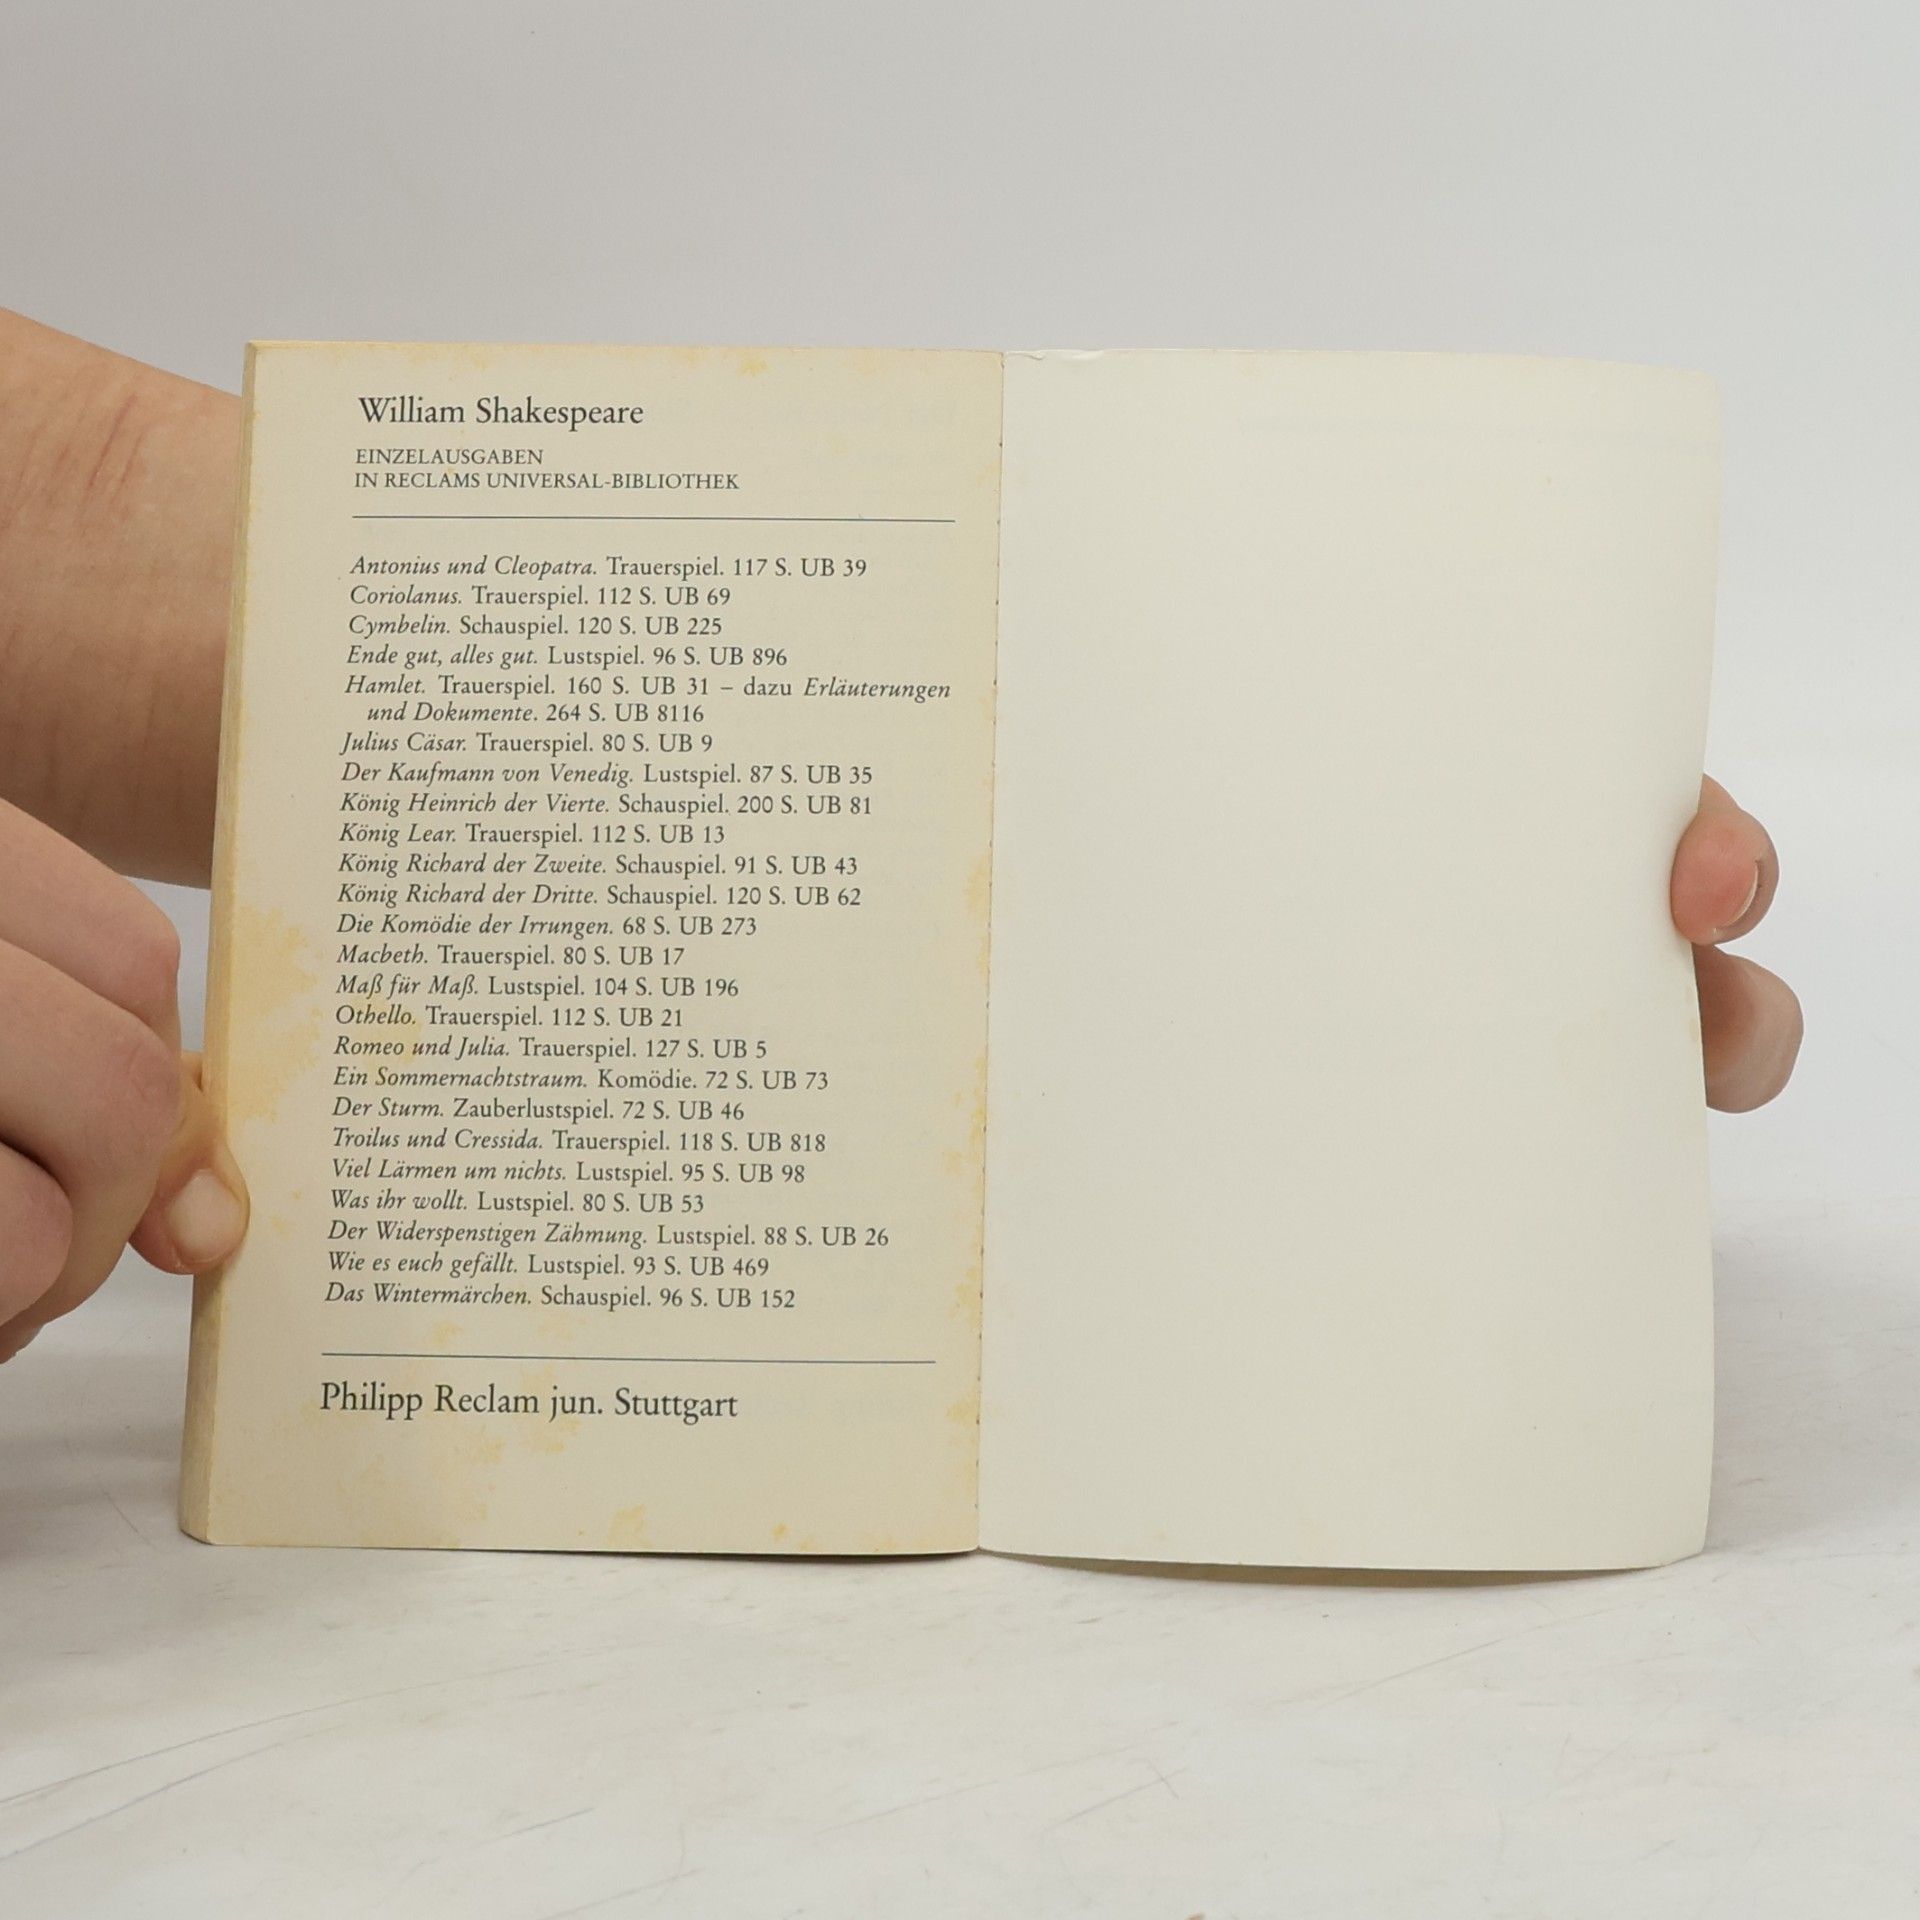 William Shakespeare
EINZELAUSGABEN
IN RECLAMS UNIVERSAL-BIBLIOTHEK
Antonius und Cleopatra. Trauerspiel. 117 S. UB 39
Coriolanus. Trauerspiel. 112 S. UB 69
Cymbelin. Schauspiel. 120 S. UB 225
Ende gut, alles gut. Lustspiel. 96 S. UB 896
Hamlet. Trauerspiel. 160 S. UB 31 – dazu Erläuterungen
und Dokumente. 264 S. UB 8116
Julius Cäsar. Trauerspiel. 80 S. UB 9
Der Kaufmann von Venedig. Lustspiel. 87 S. UB 35
König Heinrich der Vierte. Schauspiel. 200 S. UB 81
König Lear. Trauerspiel. 112 S. UB 13
König Richard der Zweite. Schauspiel. 91 S. UB 43
König Richard der Dritte. Schauspiel. 120 S. UB 62
Die Komödie der Irrungen. 68 S. UB 273
Macbeth. Trauerspiel. 80 S. UB 17
Maß für Maß. Lustspiel. 104 S. UB 196
Othello. Trauerspiel. 112 S. UB 21
Romeo und Julia. Trauerspiel. 127 S. UB 5
Ein Sommernachtstraum. Komödie. 72 S. UB 73
Der Sturm. Zauberlustspiel. 72 S. UB 46
Troilus und Cressida. Trauerspiel. 118 S. UB 818
Viel Lärmen um nichts. Lustspiel. 95 S. UB 98
Was ihr wollt. Lustspiel. 80 S. UB 53
Der Widerspenstigen Zähmung. Lustspiel. 88 S. UB 26
Wie es euch gefällt. Lustspiel. 93 S. UB 469
Das Wintermärchen. Schauspiel. 96 S. UB 152
Philipp Reclam jun. Stuttgart